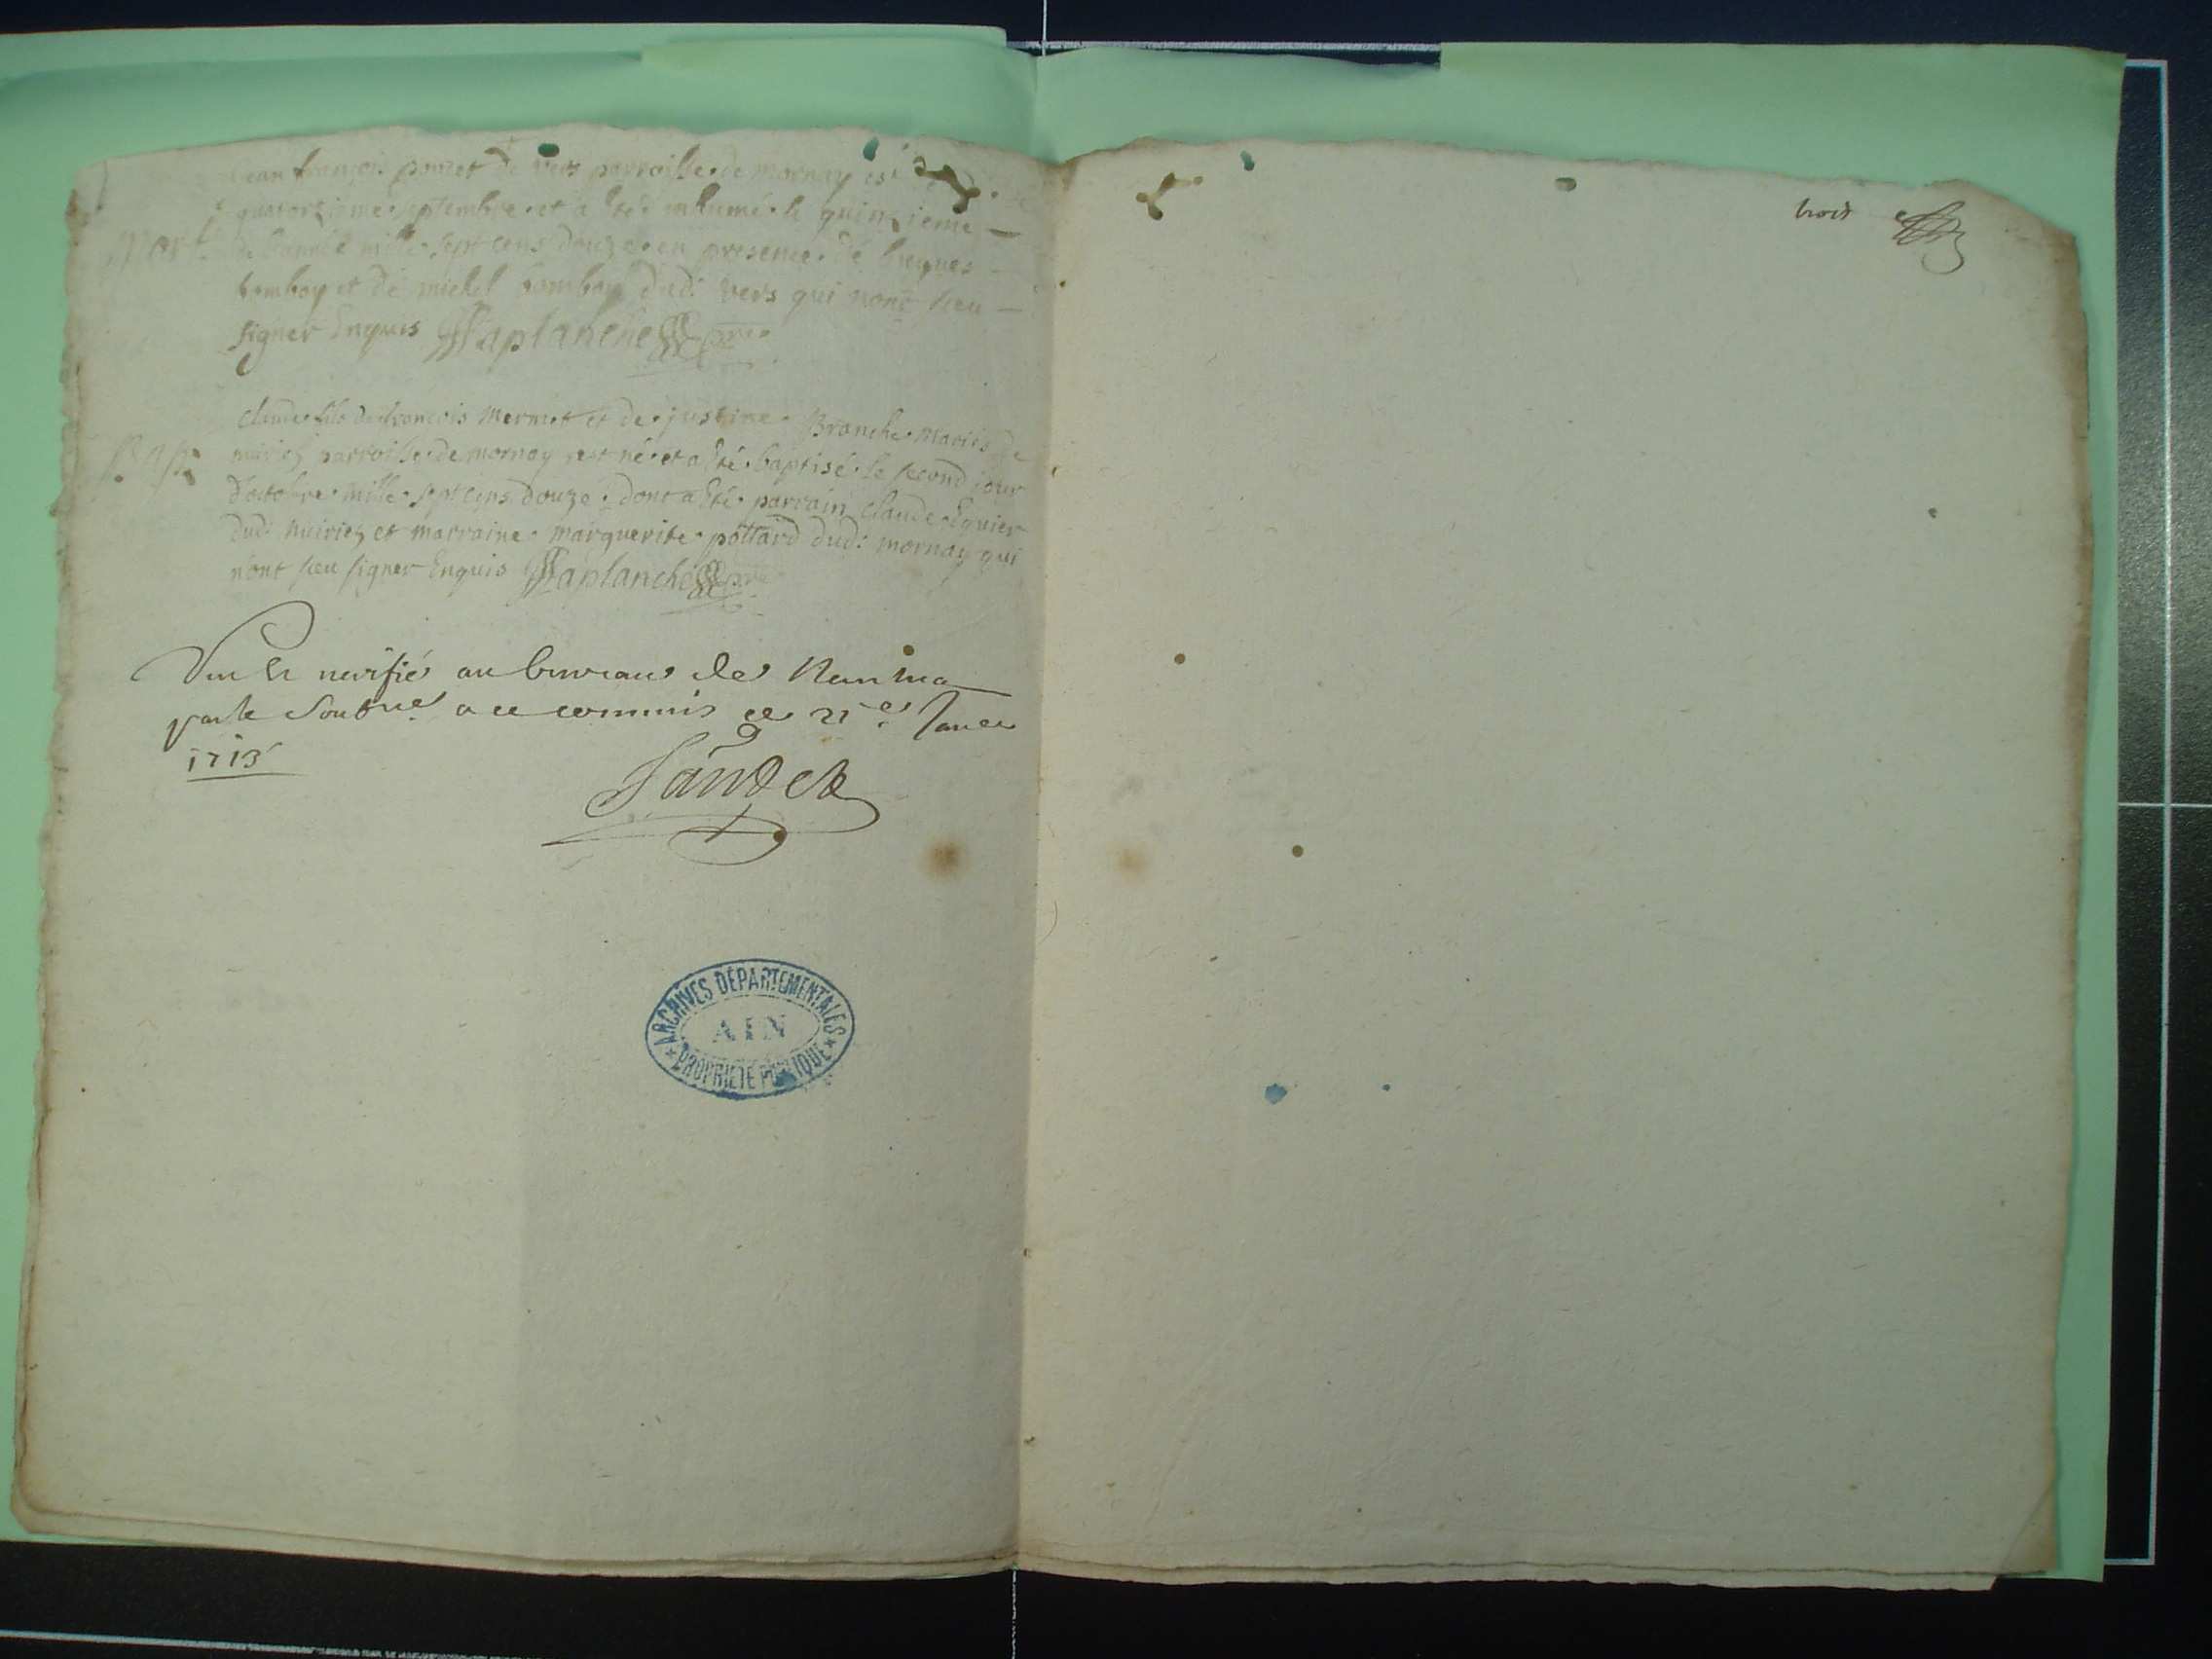 Jean françois poncet de vers parroisse de mornay est
quatorzieme septembre et a Eté inhumé le quinzieme
Mort.
de l'année mille sept cens douze en presence de
bombay et de michel bombay dud: vers qui nont sceu
signer Enquis Laplanche
Claude fils de françois Mermet et de justine Branche mariés de
Bap:
nuiriez parroisse de mornay est né et a Eté baptisé le second jour
d'octobre mille sept cens douze dont a Eté parrain claude Eguier
dud: nuiriez et marraine marguerite pottard dud: mornay qui
n'ont sceu signer Enquis Laplanche
Veu et verifié au bureau de Nantua
par le Soubne a ce commis ce 21e Janer
1713
trois
ARCHIVES DÉPARTEMENTALES
AIN
PROPRIÉTÉ PUBLIQUE